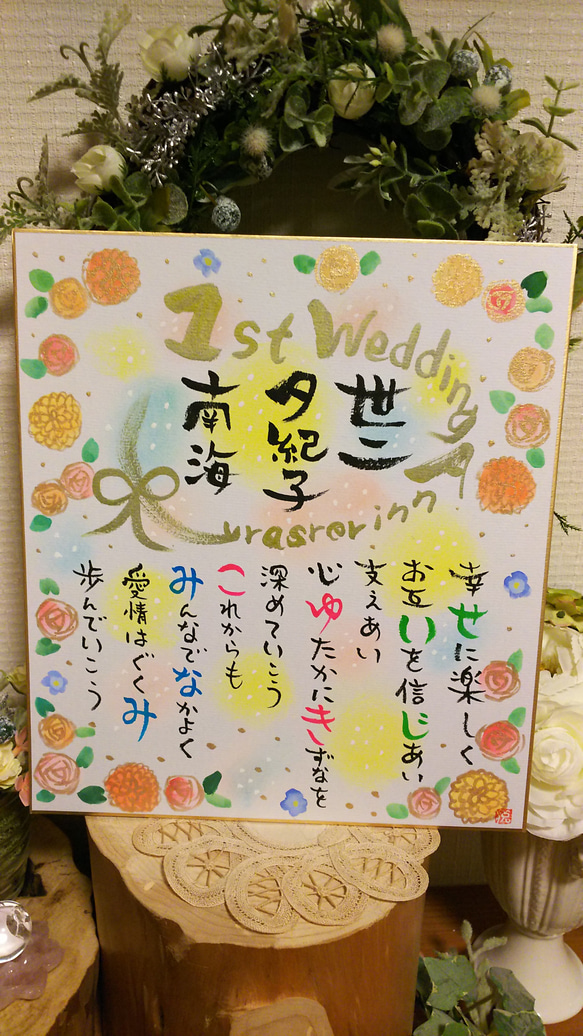 1st Wedding
世二
夕紀子
南海
幸せに楽しく
お互いを信じあい
支えあい
心ゆたかにきずなを
深めていこう
これからも
みんなでなかよく
愛情はぐくみ
歩んでいこう